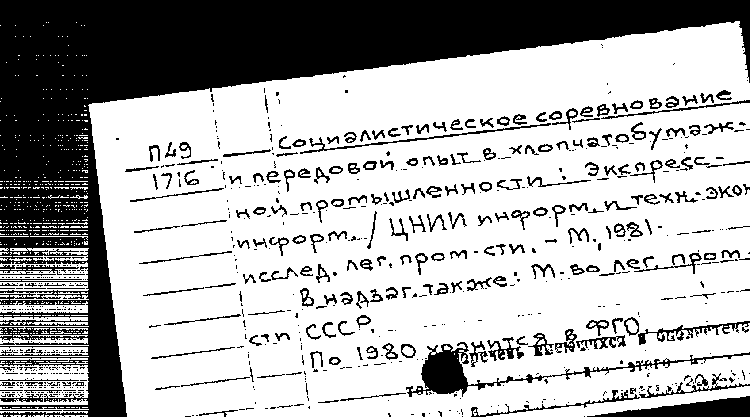 П49
1716
Социалистическое соревнование
и передовой опыт в хлопчатобумаж-
ной промышленности : Экспресс-
информ. / ЦНИИ информ. и техн.-экон
исслед. лег. пром-сти. - М., 1981-
В надзаг. также: М-во лег. пром-
сти СССР.
По 1980 хранится в ФГО